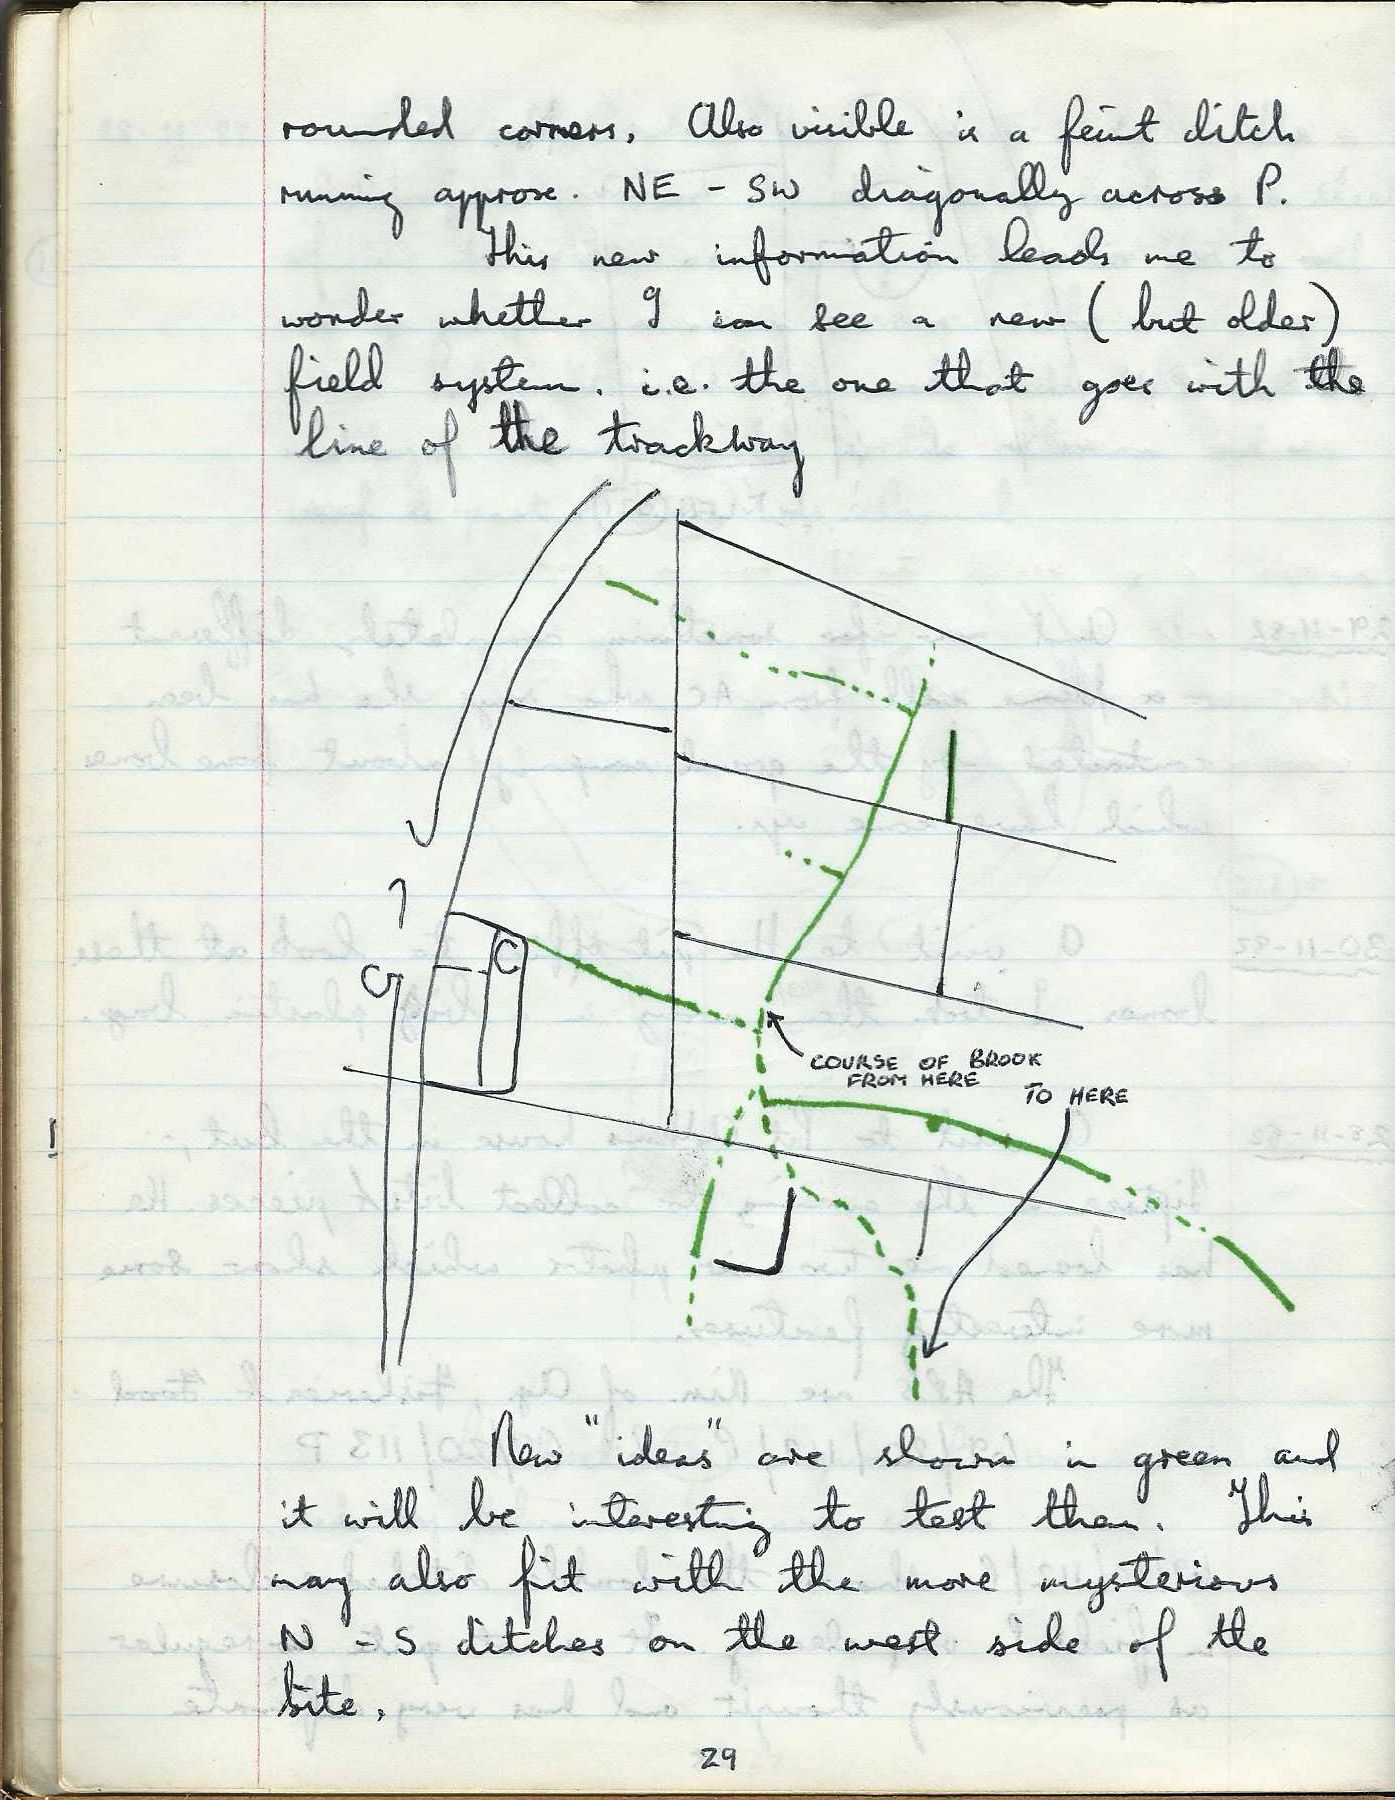 rounded corners. Also visible is a feint ditch
running approx. NE - SW diagonally across P.
This new information leads me to
wonder whether I can see a new (but older)
field system. i.e. the one that goes with the
line of the trackway
C
COURSE OF BROOK
FROM HERE
TO HERE
New "ideas" are shown in green and
it will be interesting to test them. This
may also fit with the more mysterious
N - S ditches on the west side of the
site.
29